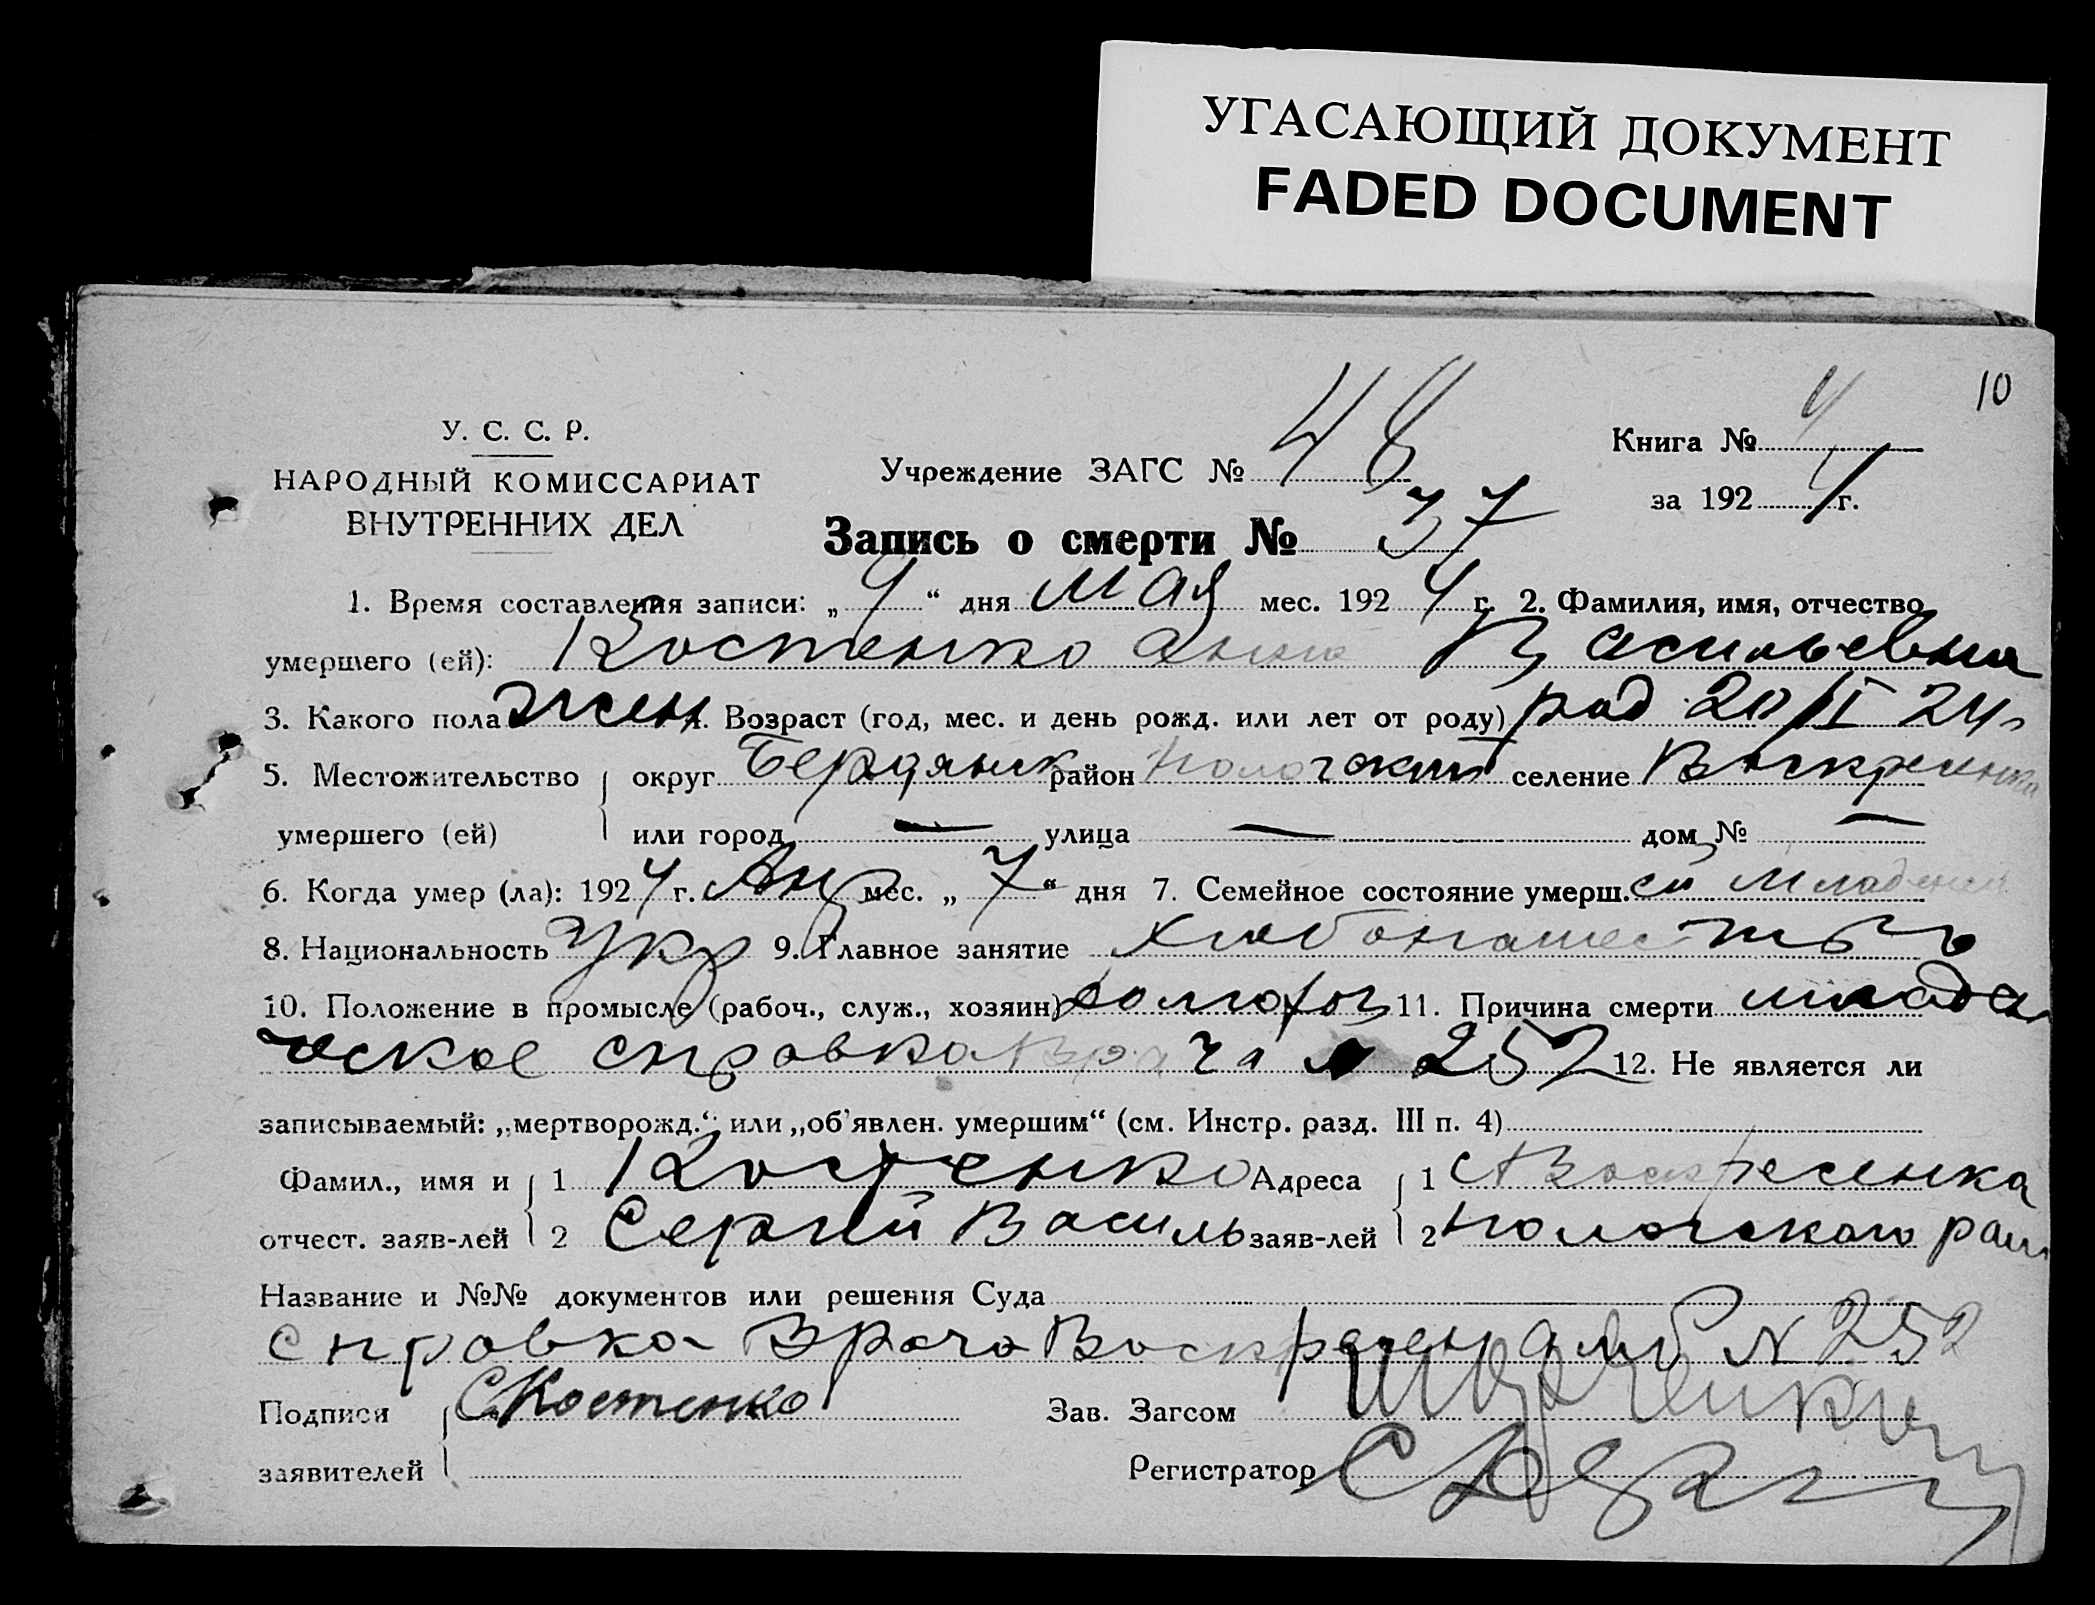 УГАСАЮЩИЙ ДОКУМЕНТ
FADED DOCUMENT
10
У. С. С. Р.
НАРОДНЫЙ КОМИССАРИАТ
ВНУТРЕННИХ ДЕЛ
Учреждение ЗАГС № 48
Книга № 4
за 1924 г.
Запись о смерти № 37
1. Время составления записи: „9“ дня мая мес. 1924 г. 2. Фамилия, имя, отчество
умершего (ей): Костенко Анна Васильевна
3. Какого пола жен 4. Возраст (год, мес. и день рожд. или лет от роду) род 20/I 24
5. Местожительство округ Бердянск район Пологский селение Воскресенка
умершего (ей) или город — улица — дом № —
6. Когда умер (ла): 1924 г. Апр мес. „7“ дня 7. Семейное состояние умерш. ей младенец
8. Национальность Укр 9. Главное занятие хлебопашество
10. Положение в промысле (рабоч., служ., хозяин) 11. Причина смерти младен
ческое справка врача № 252 12. Не является ли
записываемый: „мертворожд.“ или „об'явлен. умершим“ (см. Инстр. разд. III п. 4)
Фамил., имя и 1 Костенко Адреса 1 с Воскресенка
отчест. заяв-лей 2 Сергий Василь заяв-лей 2 Пологского рай
Название и №№ документов или решения Суда
справка Врача Воскресен амб N 252
Подписи С Костенко Зав. Загсом
заявителей Регистратор